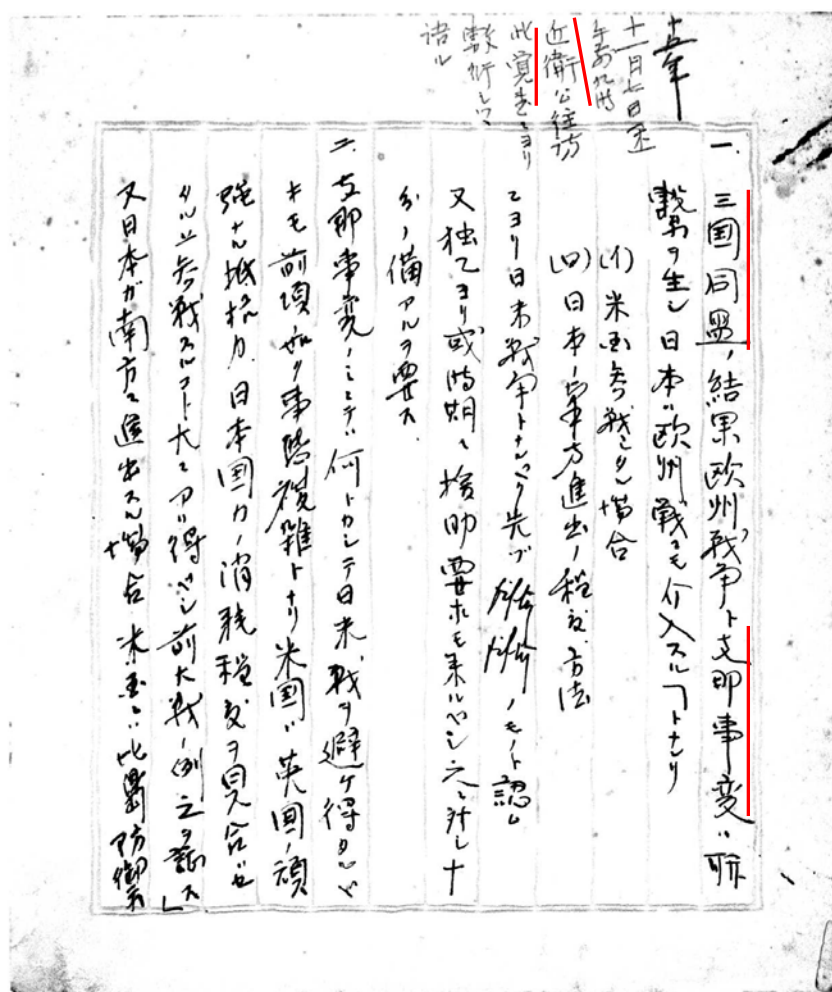 十五年
十一月七日至
午前九時
近衛公往訪
此覚書ニヨリ
敷衍シツヽ
語ル
一、三国同盟ノ結果欧州戦争ト支那事変ハ聯
繋ヲ生シ日本ハ欧州戦ニモ介入スルコトナリ
(イ)米国参戦シタル場合
(ロ)日本ノ南方進出ノ程度、方法
ニヨリ日米戦争トナルベク先ツ ノモノト認ム
又独乙ヨリ或時期ニ援助要求モ来ルベシ之ニ対シ十
分ノ備アルヲ要ス
二、支那事変ノミニテハ何トカシテ日米戦ヲ避ケ得タルベ
キモ前項ノ如ク事態複雑トナリ米国ハ英国ノ頑
強ナル抵抗力、日本国力ノ消耗程度ヲ見合ハセ
タル上参戦スルコト大ニアリ得ベシ前大戦ノ例之ヲ証ス」
又日本ガ南方ニ進出スル場合米国ハ比島防御